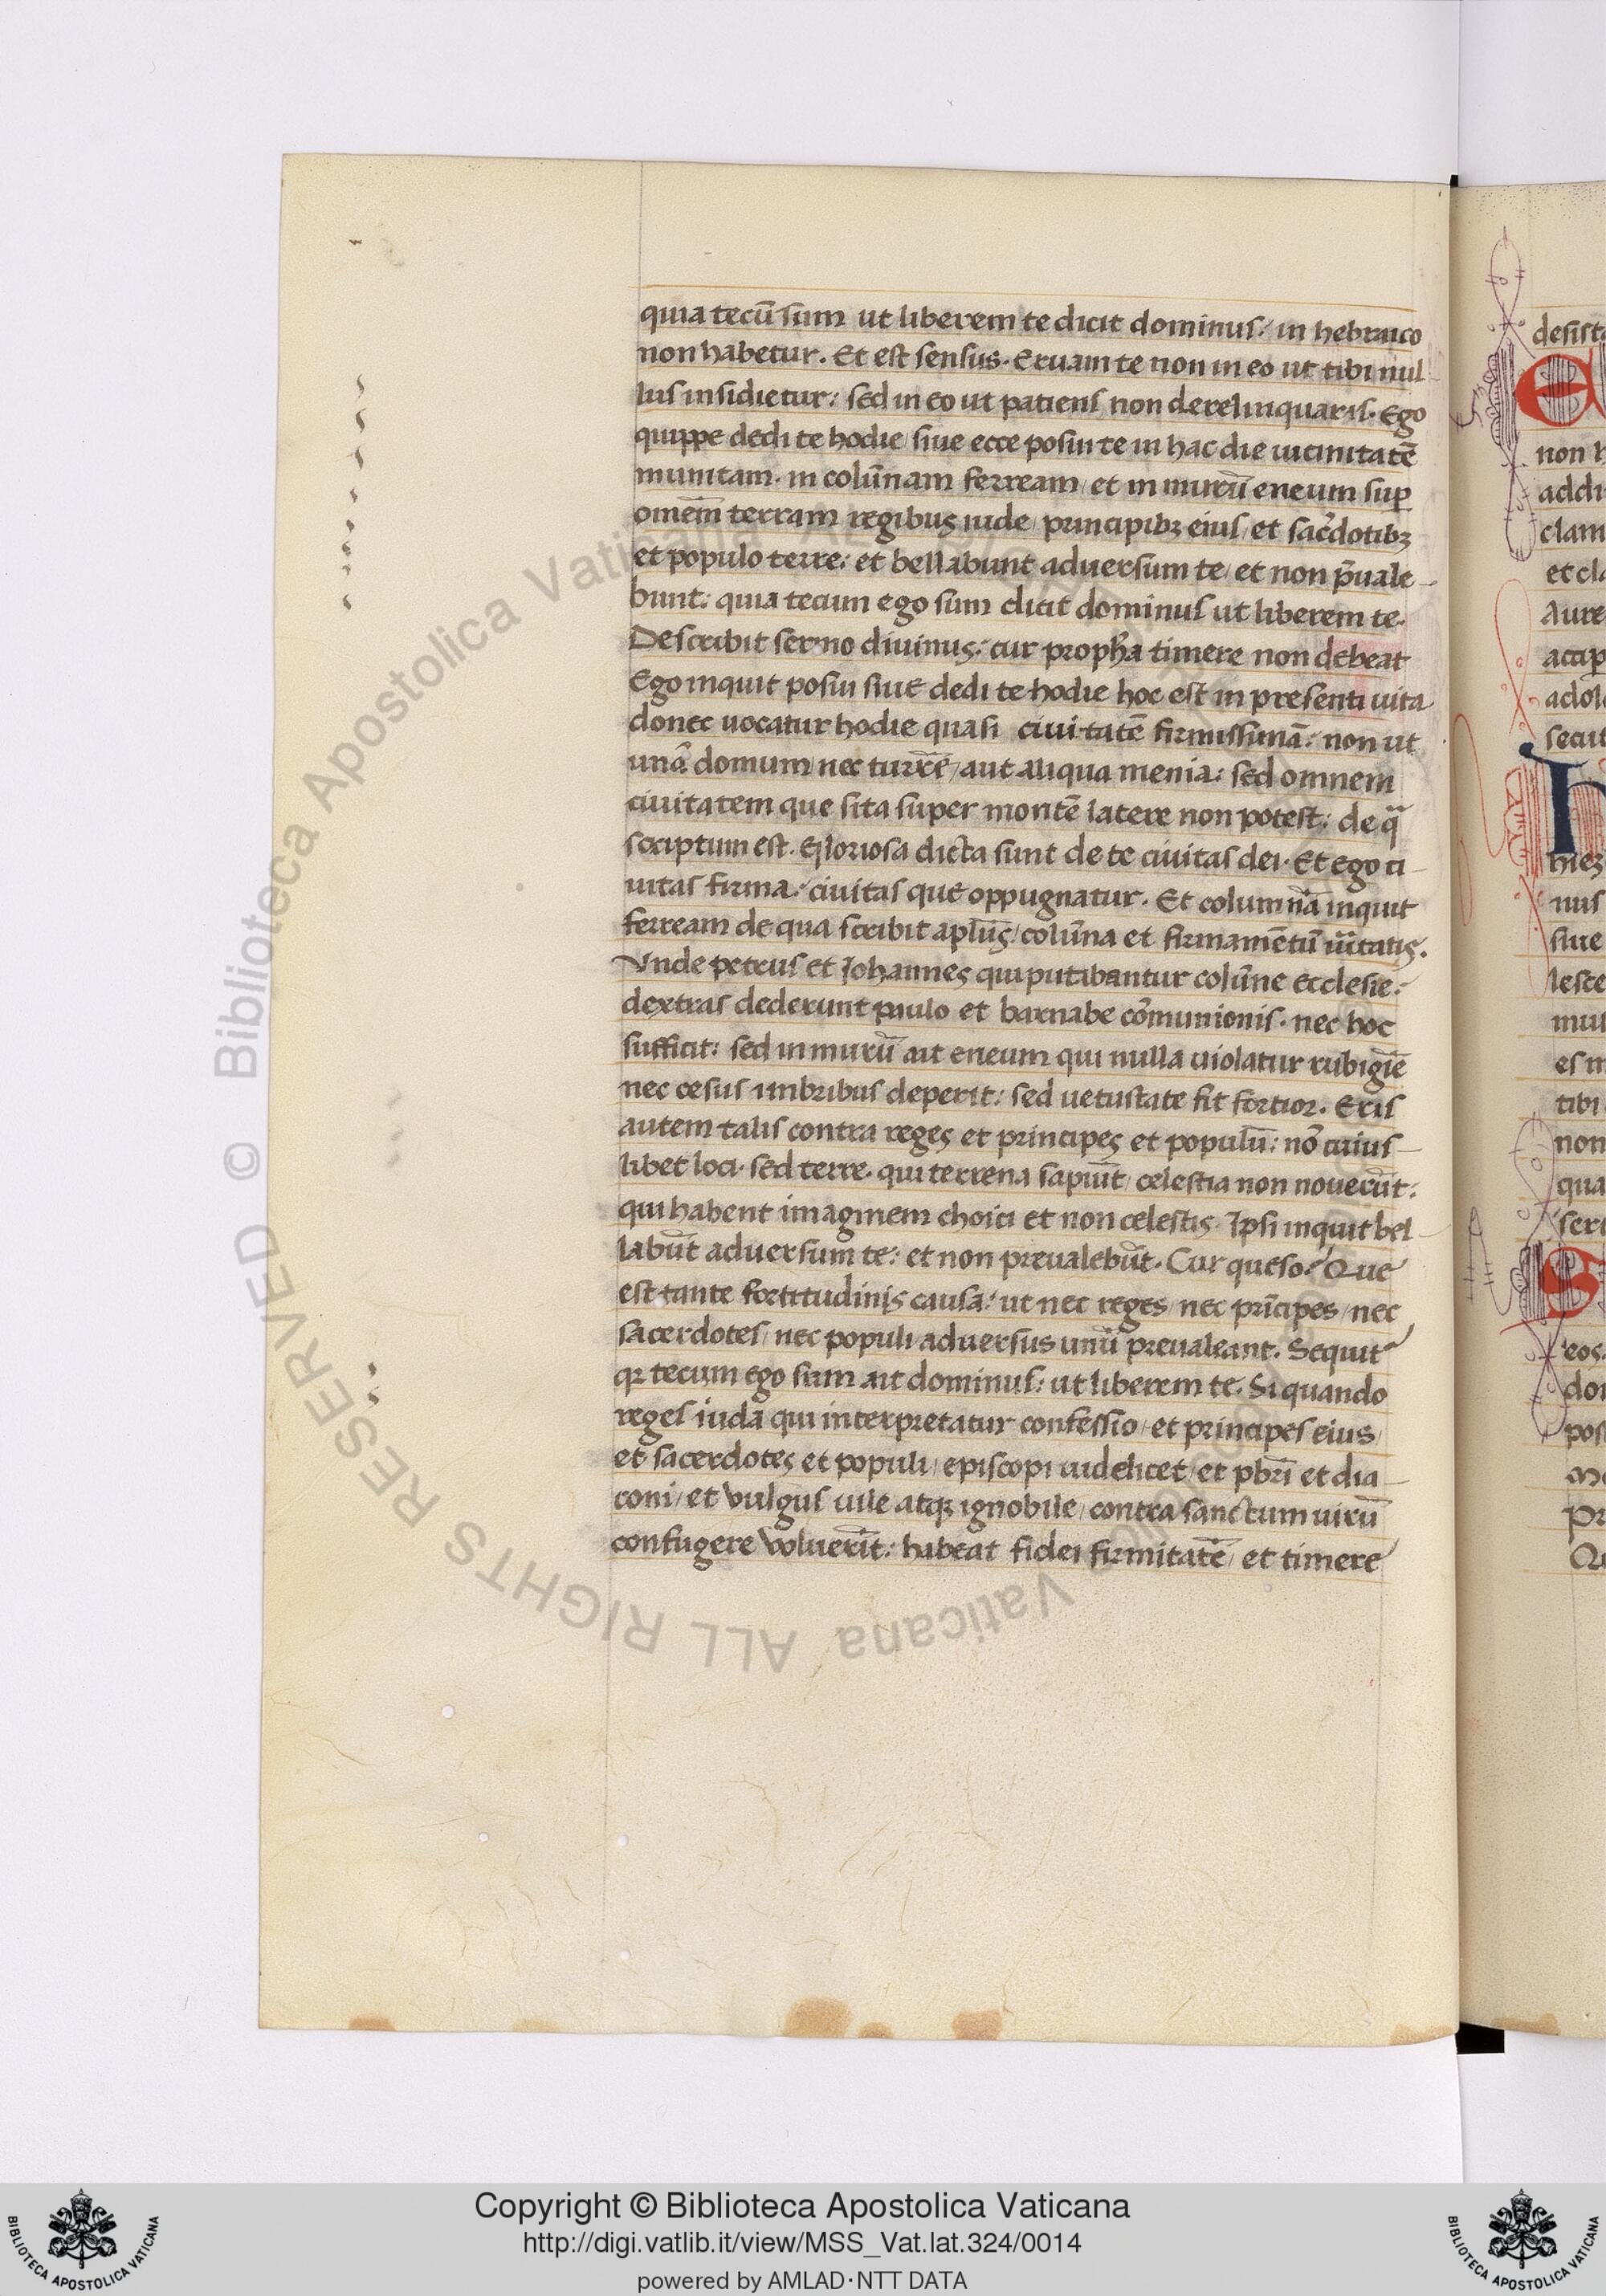 quia tecū sum ut liberem te dicit dominus: in hebraico
non habetur. Et est sensus. Eruam te non in eo ut tibi nul
lus insidietur: sed in eo ut patiens non derelinquaris. Ego
quippe dedi te hodie siue ecce posui te in hac die
munitam. in colūnam ferream/ et in murū eneum sup
omēm terram regibus iude/ principibꝫ eius/ et sac̄dotibꝫ
et populo terre: et bellabunt aduersum te/ et non p̄uale-
bunt: quia tecum ego sum dicit dominus ut liberem te.
Describit sermo diuinus: cur propħa timere non debeat
Ego inquit posui siue dedi te hodie hoc est in presenti uita
donec uocatur hodie quasi ciuitatē firmissimā: non ut
unā domum/ nec turrē/ aut aliqua menia: sed omnem
ciuitatem que sita super montē latere non potest: de qa
scriptum est. Gloriosa dicta sunt de te ciuitas dei. Et ego ci-
uitas firma: ciuitas que oppugnatur. Et columnā inquit
ferream de qua scribit apl̄us/ colūna et firmamētū ūitatis.
Vnde petrus et Johannes qui putabantur colūne ecclesie:
dextras dederunt paulo et barnabe cōmunionis. nec hoc
sufficit: sed in murū ait eneum qui nulla uiolatur rubigīe
nec cesus imbribus deperit: sed uetustate fit fortior. Eris
autem talis contra reges et principes et populū: nō cuius-
libet loci. sed terre. qui terrena sapiūt/ celestia non nouerūt:
qui habent imaginem choici et non celestis. Ipsi inquit bel-
labūt aduersum te: et non preualebūt. Cur queso? Que
est tante fortitudinis causa: ut nec reges/ nec prīcipes/ nec
sacerdotes/ nec populi aduersus unū preualeant. Sequit
qꝛ tecum ego sum ait dominus: ut liberem te. Si quando
reges iuda qui interpretatur confessio/ et principes eius/
et sacerdotes et populi/ episcopi uidelicet/ et pbr̄i et dia-
coni/ et vulgus uile atqꝫ ignobile/ contra sanctum uirū
confugere voluerīt: habeat fidei firmitatē/ et timere
desist
E
non h
addi
clam
et cla
Aure
accip
adole
secut
h
nus
siue
mul
es m
tibi
non
qua
seru
S
eos.
don
post
Pr
© Biblioteca Apostolica Vaticana ALL RIGHTS RESERVED
Copyright © Biblioteca Apostolica Vaticana
http://digi.vatlib.it/view/MSS_Vat.lat.324/0014
powered by AMLAD·NTT DATA
BIBLIOTECA APOSTOLICA VATICANA
BIBLIOTECA APOSTOLICA VATICANA